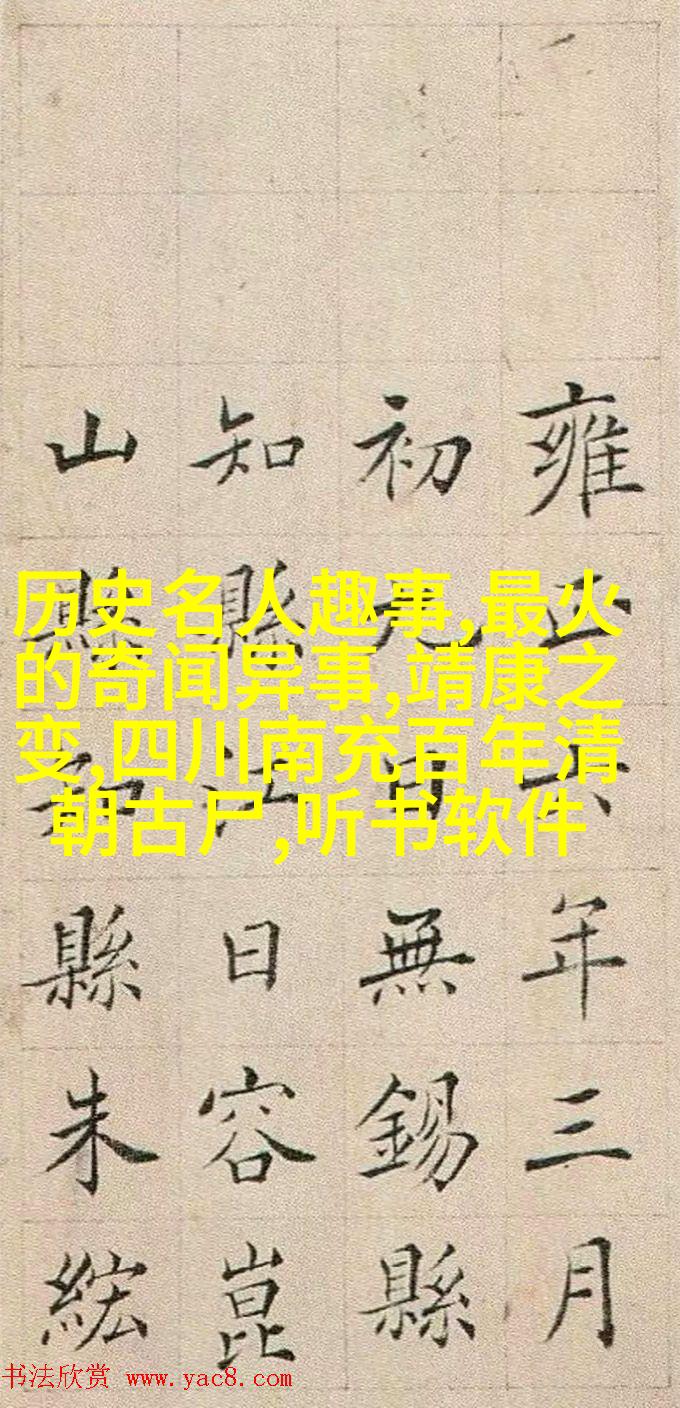 雍正六年三月
初九日無錫縣
知縣江日容崑
山縣知縣朱紘
历史名人趣事,最火
的奇闻异事,靖康之
变,四川南充百年清
朝古尸,听书软件
书法欣赏 www.yac8.com